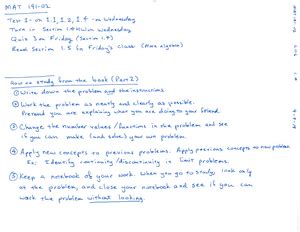 MAT 191-02
Test 1 - on 1.1, 1.2, 1.4 - on Wednesday
Turn in Section 1.4 HW on Wednesday
Quiz 3 on Friday (Section 1.4)
Read Section 1.5 for Friday's class (More algebra)
How to study from the book (Part 2)
① Write down the problem and the instructions
② Work the problem as neatly and clearly as possible.
Pretend you are explaining what you are doing to your friend.
③ Change the number values / functions in the problem and see
if you can make (and solve) your own problem.
④ Apply new concepts to previous problems. Apply previous concepts to new problems
Ex: Identify continuity / discontinuity in limit problems.
⑤ Keep a notebook of your work. When you go to study, look only
at the problem, and close your notebook and see if you can
work the problem without looking.